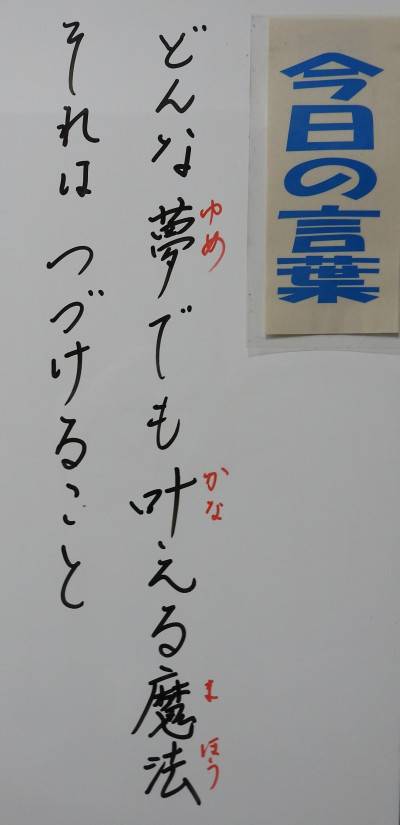 今日の言葉
どんな夢でも叶える魔法
ゆめ
かな
まほう
それは つづけること